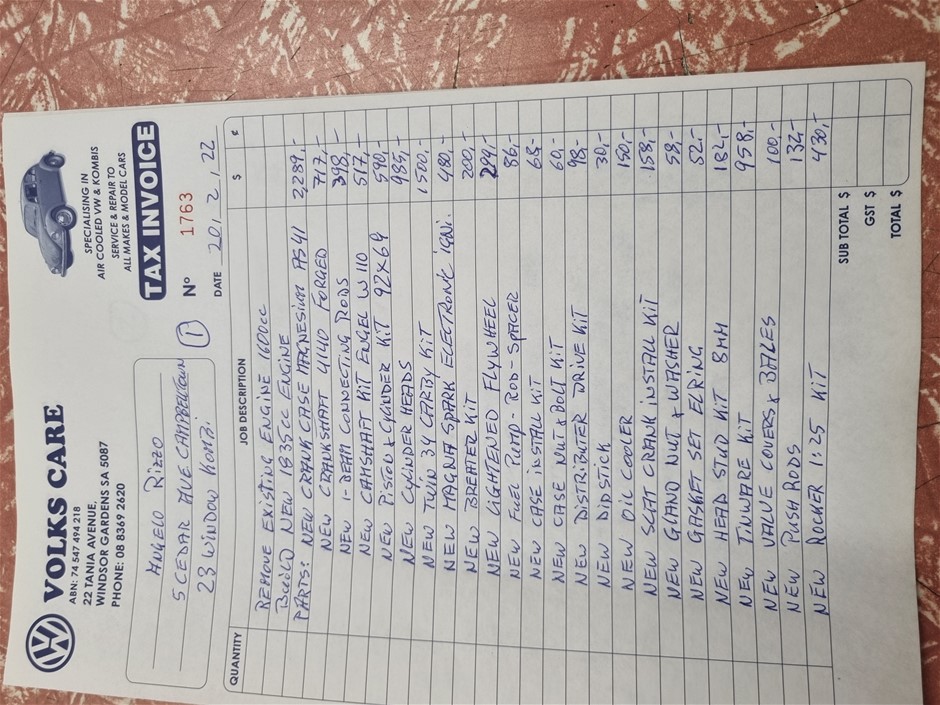 VOLKS CARE
ABN: 74 547 494 218
22 TANIA AVENUE,
WINDSOR GARDENS SA 5087
PHONE: 08 8369 2620
SPECIALISING IN
AIR COOLED VW & KOMBIS
SERVICE & REPAIR TO
ALL MAKES & MODEL CARS
TAX INVOICE
ANGELO RIZZO
5 CEDAR AVE CAMPBELTOWN
23 WINDOW KOMBI
1
Nº 1763
DATE 20/.2/.22
QUANTITY JOB DESCRIPTION $ ¢
REMOVE EXISTING ENGINE 1600cc
BUILD NEW 1835cc ENGINE
PARTS: NEW CRANK CASE MAGNESIUM AS41 2,289,-
NEW CRANKSHAFT 4140 FORGED 717,-
NEW I-BEAM CONNECTING RODS 398,-
NEW CAMSHAFT KIT ENGEL W110 517,-
NEW PISTON & CYLINDER KIT 92x69 590,-
NEW CYLINDER HEADS 985,-
NEW TWIN 34 CARBY KIT 1500,-
NEW MAGNA SPARK ELECTRONIC IGNI. 480,-
NEW BREATER KIT 200,-
NEW LIGHTENED FLYWHEEL 291,-
NEW FUEL PUMP-ROD-SPACER 86,-
NEW CASE INSTALL KIT 68,-
NEW CASE NUT & BOLT KIT 60,-
NEW DISTRIBUTER DRIVE KIT 98,-
NEW DIDSTICK 30,-
NEW OIL COOLER 150,-
NEW SCAT CRANK INSTALL KIT 158,-
NEW GLAND NUT & WASHER 58,-
NEW GASKET SET ELRING 52,-
NEW HEAD STUD KIT 8MM 182,-
NEW TINWARE KIT 958,-
NEW VALVE COVERS & BALES 100,-
NEW PUSH RODS 132,-
NEW ROCKER 1:25 KIT 430,-
SUB TOTAL $
GST $
TOTAL $